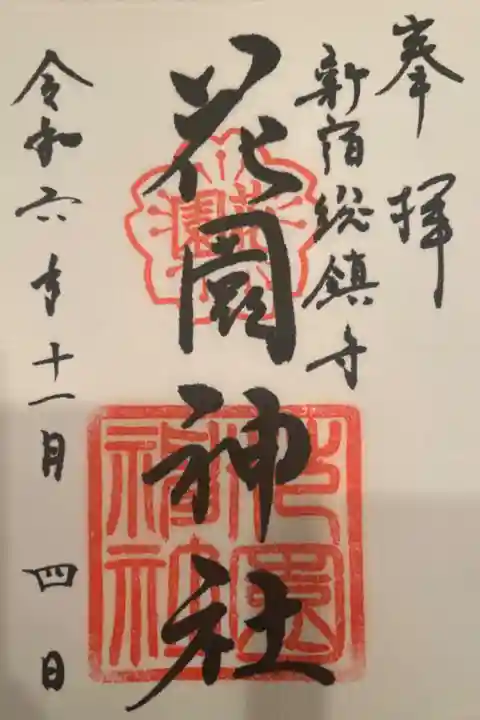 奉拝
新宿総鎮守
花園神社
令和六年十一月四日
花園
花園神社